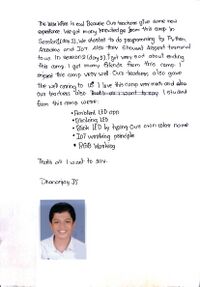 The Workshop is cool Because Our teachers give some new
experience. We got many knowledge from this camp. In
Session 1 (day 1), We started to do programming by Python,
Arduino and IOT. Also they showed about
tour. In session 2 (day 2), I got very sad about ending
this camp. I got many friends from this camp. I
enjoyed this camp very well. Our teachers also gave
the well caring to us. I love this camp very much and also
our teachers also. That's all I want to say. I studied
from this camp were:
• LED app
• Blinking LED
• Blink LED by typing our own color name
• IoT working principle
• RGB Working
That's all I want to say.
Dhananjay JS